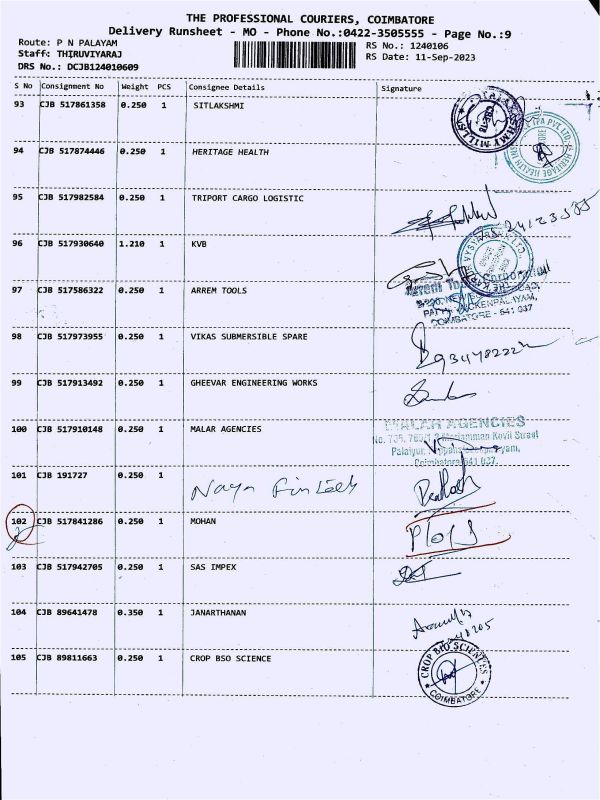 THE PROFESSIONAL COURIERS, COIMBATORE
Delivery Runsheet - MO - Phone No.:0422-3505555 - Page No.:9
Route: P N PALAYAM
RS No.: 1240106
Staff: THIRUVIYARAJ
RS Date: 11-Sep-2023
DRS No.: DCJB124010609
S No Consignment No Weight PCS Consignee Details Signature
93 CJB 517861358 0.250 1 SITLAKSHMI
94 CJB 517874446 0.250 1 HERITAGE HEALTH
95 CJB 517982584 0.250 1 TRIPORT CARGO LOGISTIC
96 CJB 517930640 1.210 1 KVB
97 CJB 517586322 0.250 1 ARREM TOOLS
COIMBATORE - 641 037
98 CJB 517973955 0.250 1 VIKAS SUBMERSIBLE SPARE
99 CJB 517913492 0.250 1 GHEEVAR ENGINEERING WORKS
100 CJB 517910148 0.250 1 MALAR AGENCIES
MALAR AGENCIES
Mariamman Kovil Street
Coimbatore-641 037.
101 CJB 191727 0.250 1 Naya Fintech
102 CJB 517841286 0.250 1 MOHAN
103 CJB 517942705 0.250 1 SAS IMPEX
104 CJB 89641478 0.350 1 JANARTHANAN
105 CJB 89811663 0.250 1 CROP BSO SCIENCE
CROP BIO SCIENCES
COIMBATORE